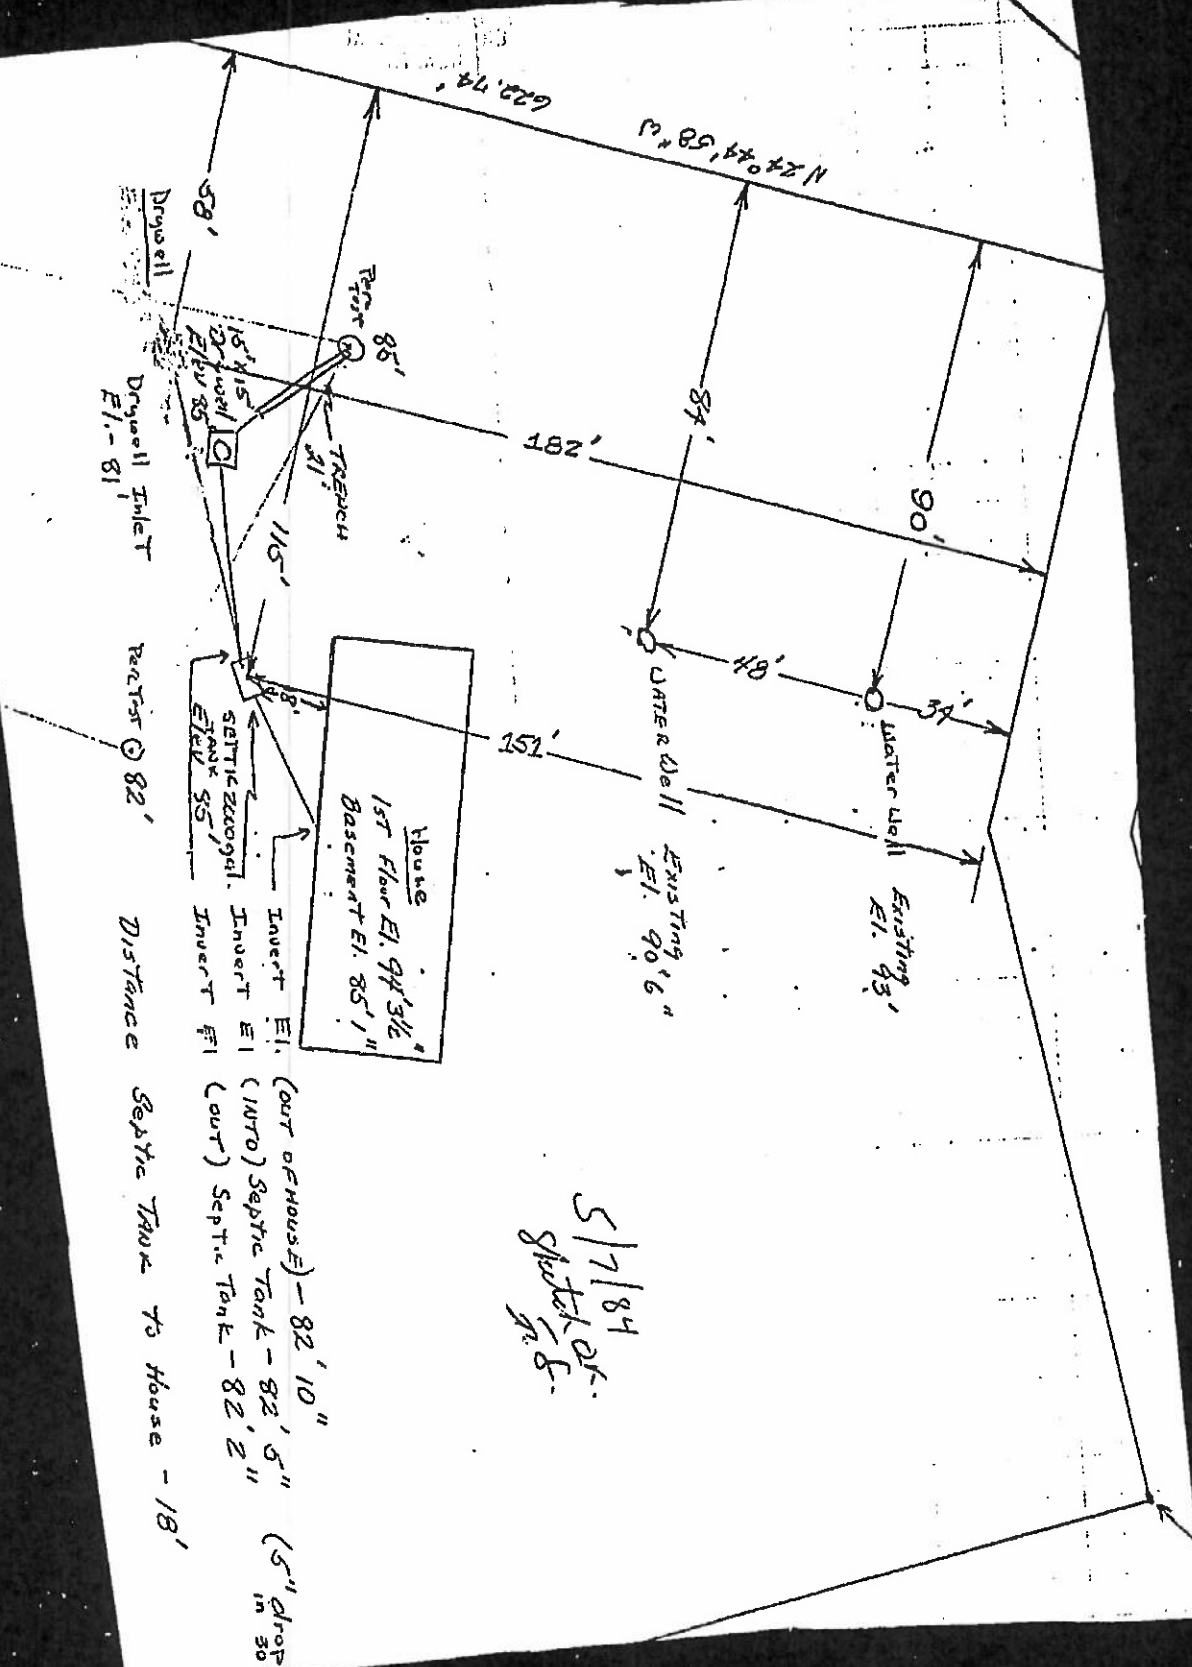 622.74'
N 24° 44' 58" W
58'
Drywell
Perc
Test
85'
15' x 15'
Drywell
Elev 85'
TRENCH
21'
182'
84'
90'
115'
Drywell Inlet
El. - 81'
48'
34'
Water Well
Existing
El. 93'
WATER Well
Existing
El. 90'6"
151'
18'
House
1ST Floor El. 94' 3 1/2"
Basement El. 85' 1"
SEPTIC 2000 gal.
TANK
Elev 85'
Perc Test @ 82'
Invert El. (OUT OF HOUSE) - 82' 10"
Invert El (INTO) Septic Tank - 82' 5" (5" drop
in 30
Invert El (OUT) Septic Tank - 82' 2"
DISTANCE Septic TANK to House - 18'
5/7/84
Sketch OK.